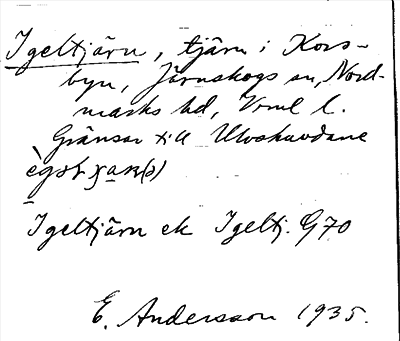 Igeltjärn, tjärn i Kors-
byn, Järnskogs sn, Nord-
marks hd, Vrml l.
Gränsar till
Igeltjärn ek Igeltj. G70
E. Andersson 1935.